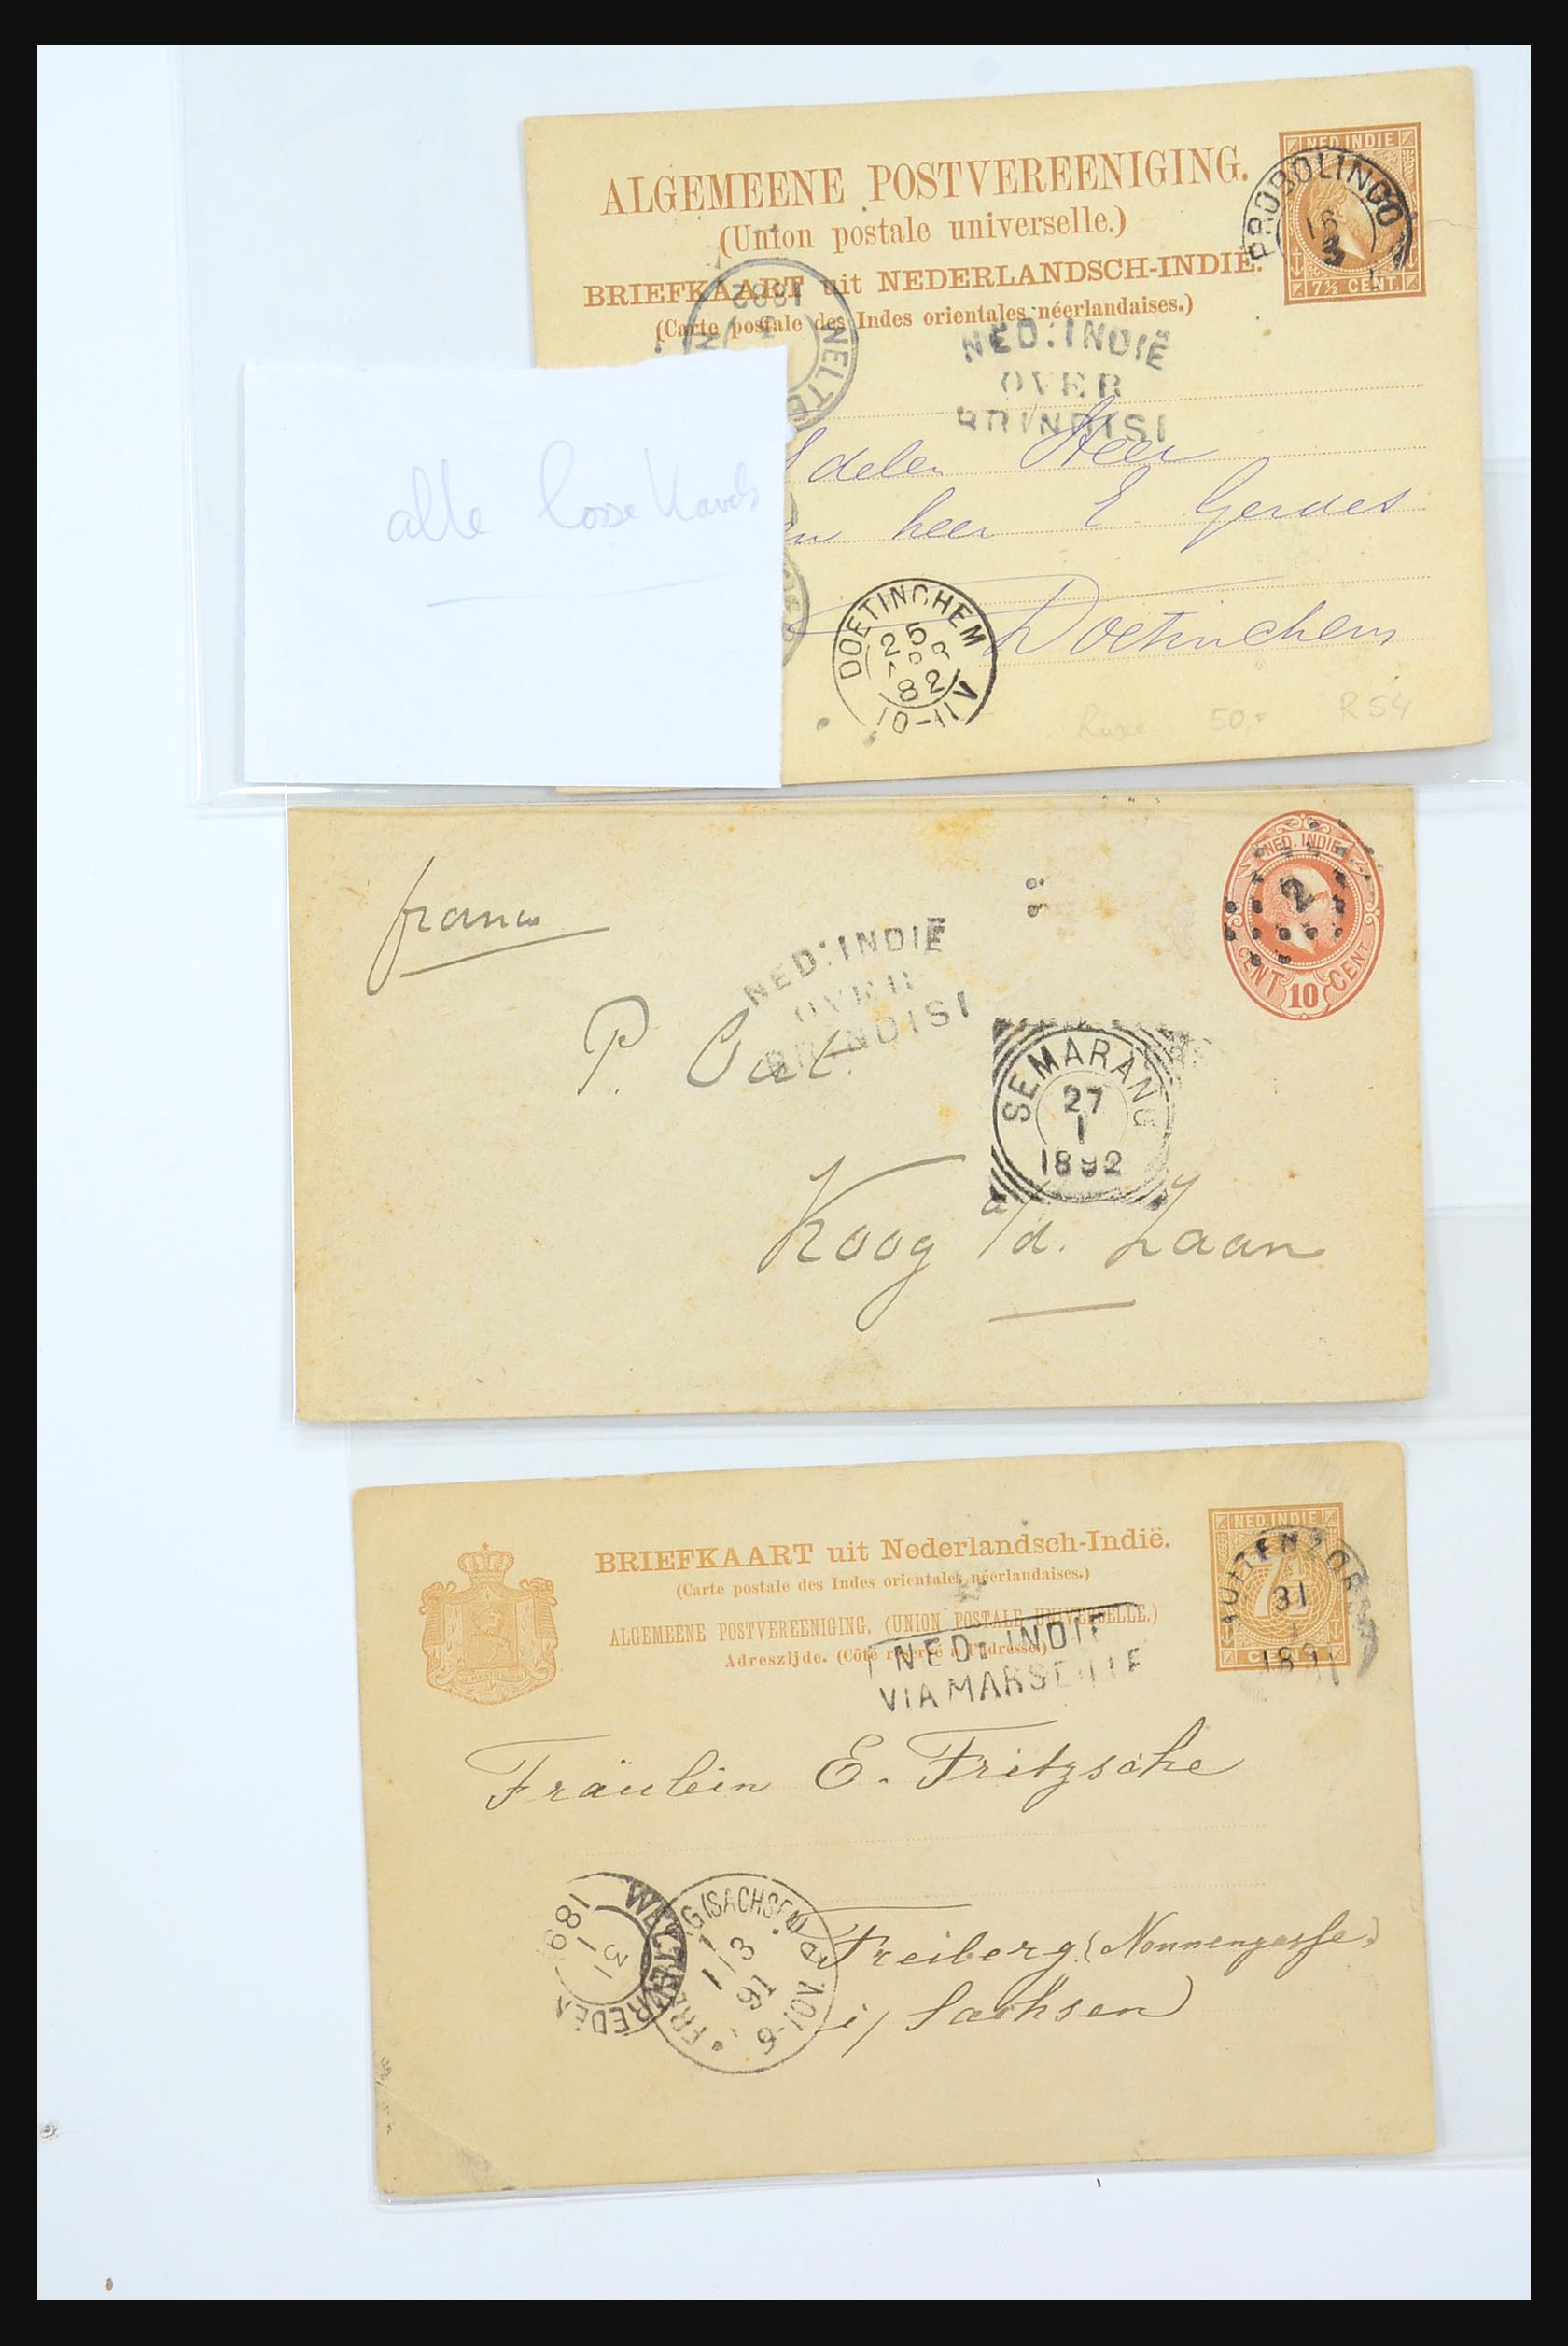 ALGEMEENE POSTVEREENIGING.
(Union postale universelle.)
BRIEFKAART uit NEDERLANDSCH-INDIË.
(Carte postale des Indes orientales néerlandaises.)
NED. INDIE
7½ CENT.
PROBOLINGO
18
3
1882
WELTE
NED: INDIË
OVER
BRINDISI
Edelen Heer
heer E Gerdes
Doetinchem
DOETINCHEM
25
82
10-11V
Ruxe 50,= R54
alle losse Kavels
franco
NED. INDIE
CENT 10 CENT
2
NED: INDIË
OVER
BRINDISI
P. Out
SEMARANG
27
1
1892
a
Koog a/d. Zaan
BRIEFKAART uit Nederlandsch-Indië.
(Carte postale des Indes orientales néerlandaises.)
ALGEMEENE POSTVEREENIGING. (UNION POSTALE UNIVERSELLE.)
Adreszijde. (Côté réservé à l'adresse.)
NED. INDIE
7½
CENT
BUITENZORG
31
1
1891
NED: INDIE
VIA MARSEILLE
Fräulein E. Fritzsche
Freiberg (Nonnengasse)
i/ Sachsen
WELTEVREDEN
31
1
189
FREIBERG (SACHSEN)
1
1/3
91
6-10V.